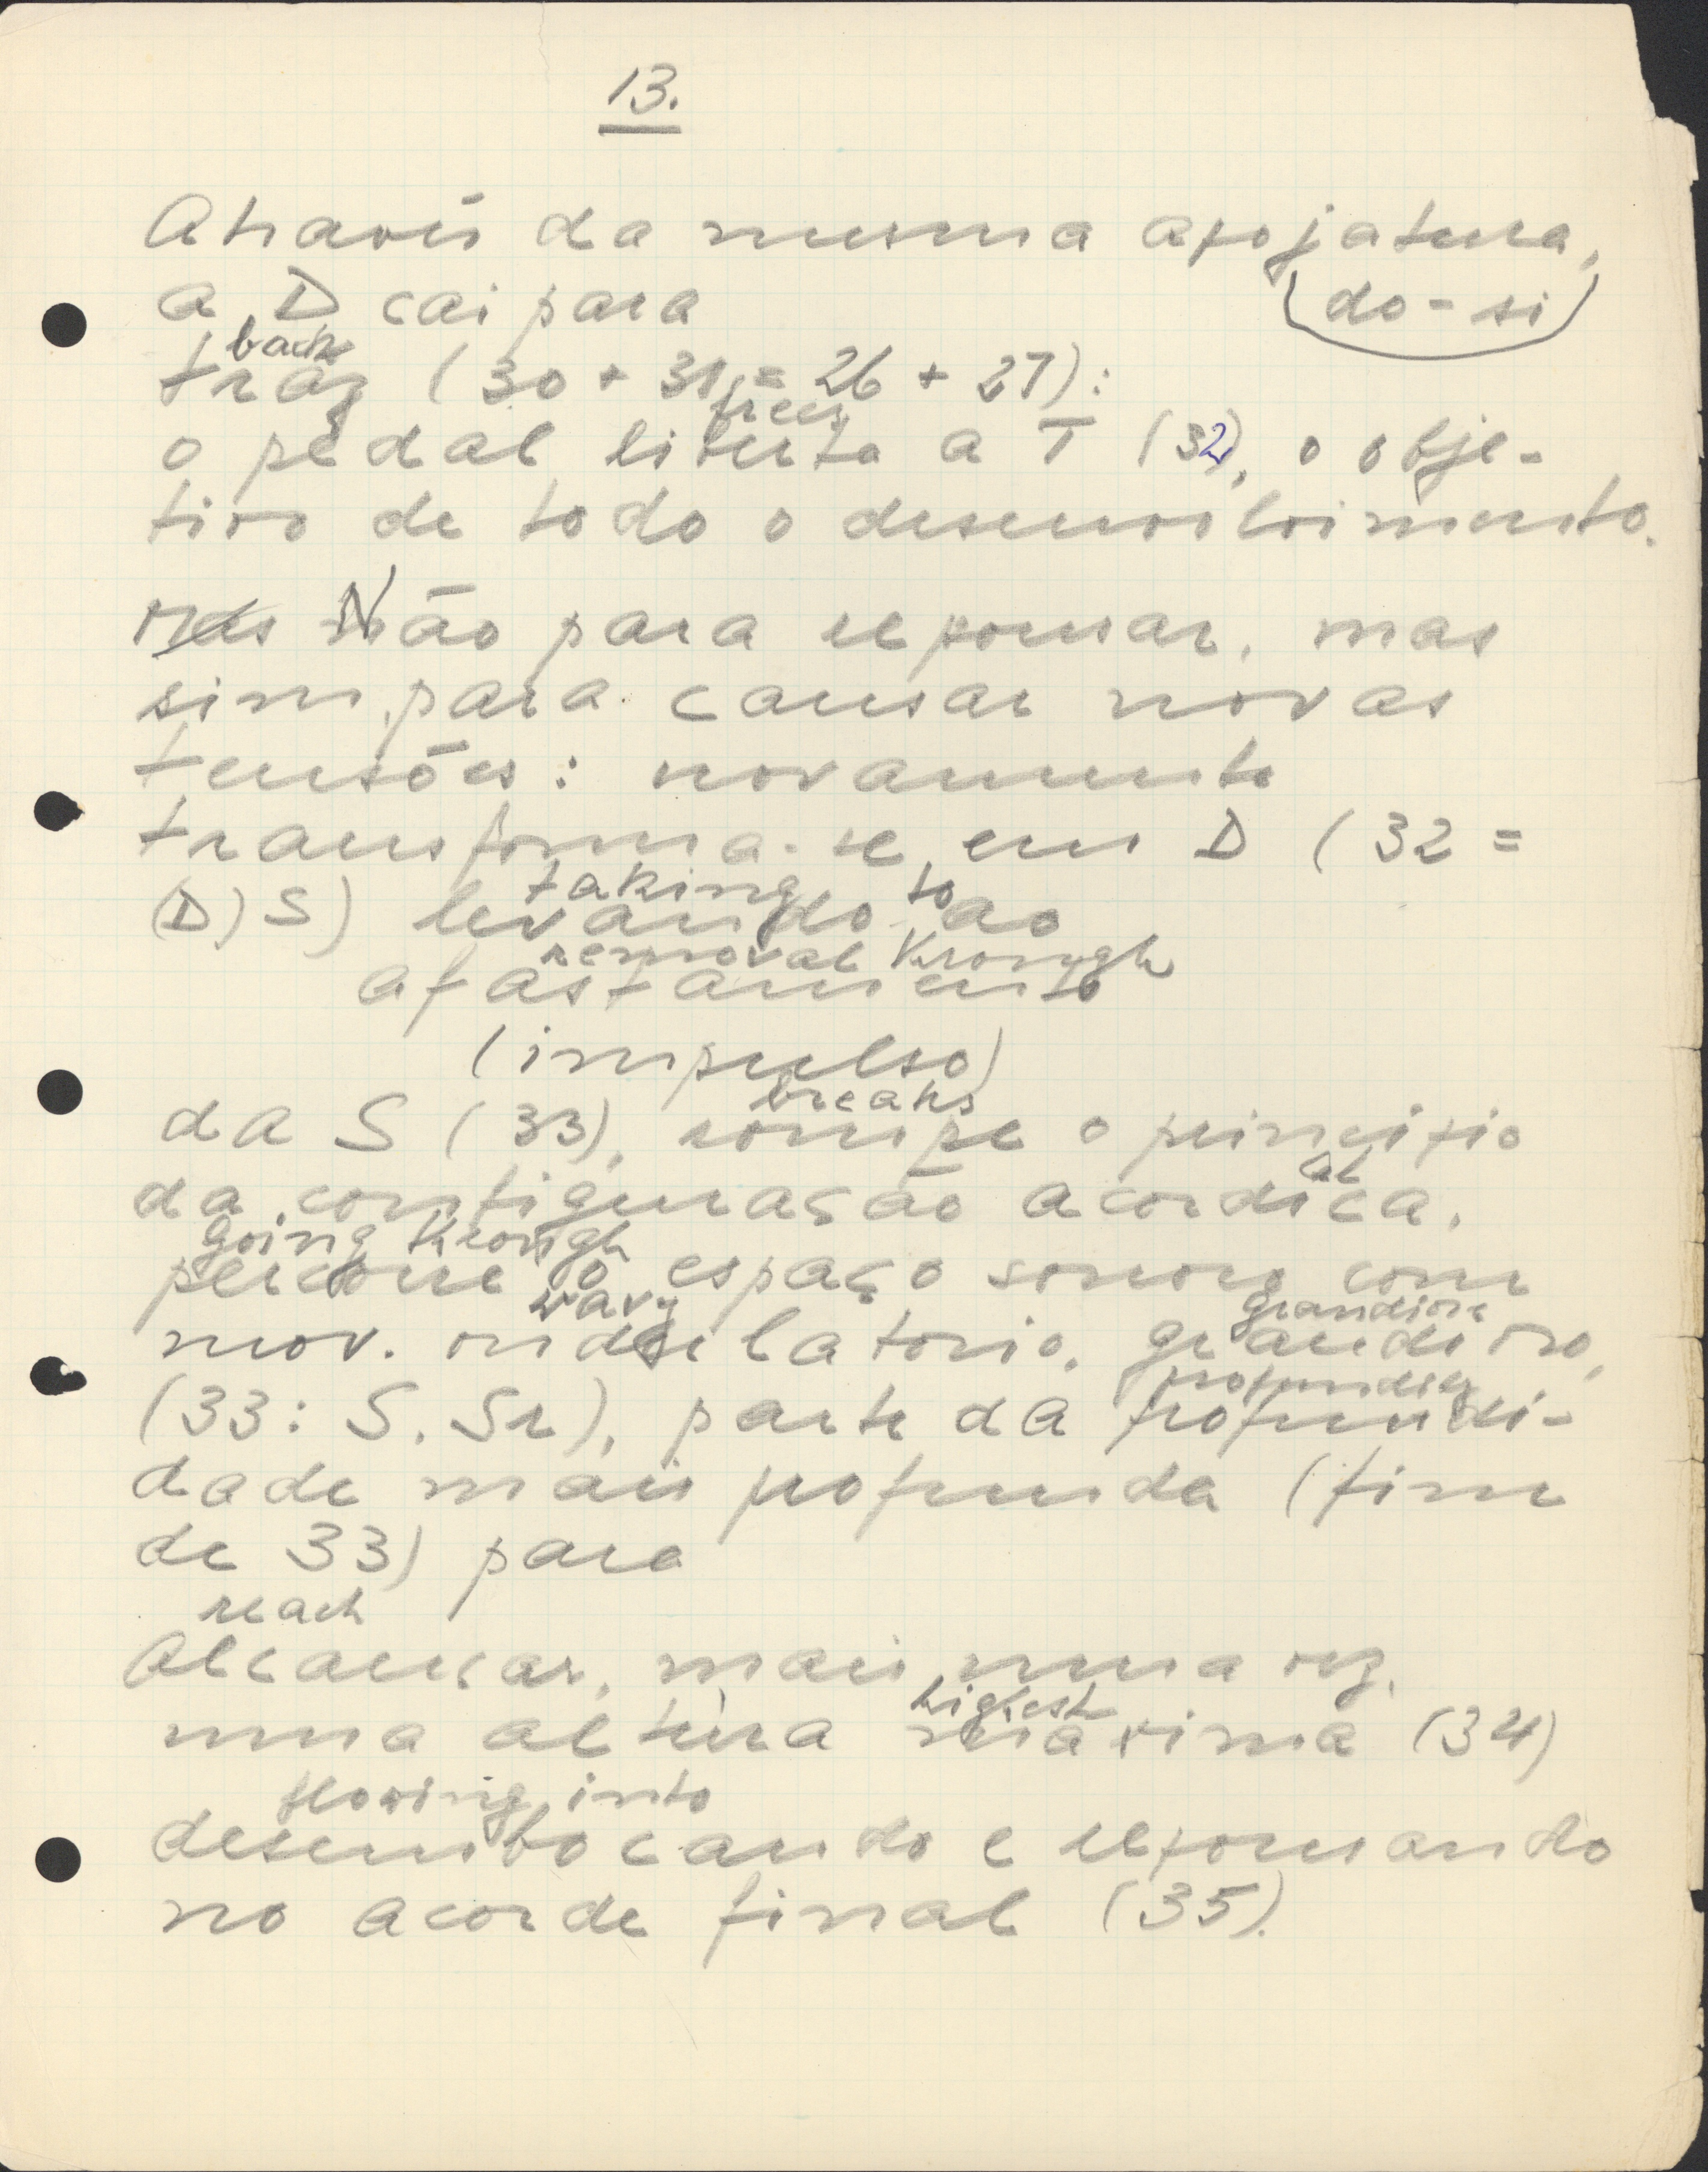 13.
Através da mesma apojatura,
a D cai para (do-si)
back
traz (30 + 31 = 26 + 27):
frees
o pedal liberta a T (32), o obje-
tivo de todo o desenvolvimento.
Mas Não para repousar, mas
sim para causar novas
tensões: novamente
transforma-se em D (32 =
taking to
(D) S) levando ao
removal through
afastamento
(impulso)
breaks
da S (33), rompe o principio
al
da configuração acordica,
going through
percorre o espaço sonoro com
wavy grandiose
mov. ondulatorio, grandioso,
profundity
(33: S. Sr), parte da profundi-
dade mais profunda (fim
de 33) para
reach
Alcançar, mais uma vez,
highest
uma altura máxima (34)
flowing into
desembocando e repousando
no acorde final (35).